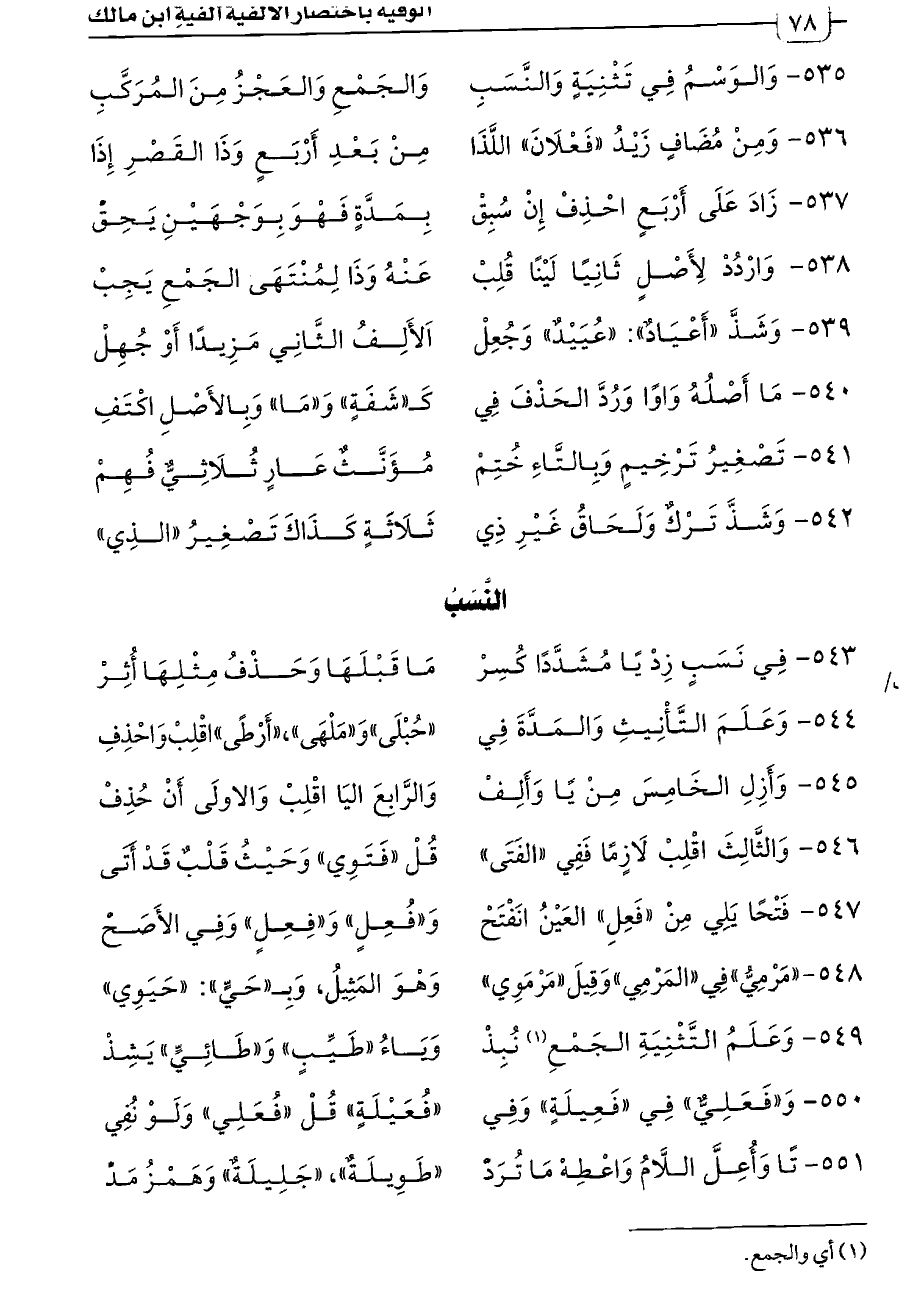 ٧٨ الوفية باختصار الألفية ألفية ابن مالك
٥٣٥- وَالوَسْمُ فِي تَثْنِيَةٍ وَالنَّسَبِ وَالجَمْعِ وَالعَجْزُ مِنَ المُرَكَّبِ
٥٣٦- وَمِنْ مُضَافٍ زَيْدُ «فَعْلَانَ» اللَّذَا مِنْ بَعْدِ أَرْبَعٍ وَذَا القَصْرِ إِذَا
٥٣٧- زَادَ عَلَى أَرْبَعٍ احْذِفْ إِنْ سُبِقْ بِمَدَّةٍ فَهْوَ بِوَجْهَيْنِ يَحِقّْ
٥٣٨- وَارْدُدْ لِأَصْلٍ ثَانِيًا لَيْنًا قُلِبْ عَنْهُ وَذَا لِمُنْتَهَى الجَمْعِ يَجِبْ
٥٣٩- وَشَذَّ «أَعْيَادٌ»: «عُيَيْدٌ» وَجُعِلْ اَلأَلِفُ الثَّانِي مَزِيدًا أَوْ جُهِلْ
٥٤٠- مَا أَصْلُهُ وَاوًا وَرُدَّ الحَذْفَ فِي كَـ«شَفَةٍ» وَ«مَا» وَبِالأَصْلِ اكْتَفِ
٥٤١- تَصْغِيرُ تَرْخِيمٍ وَبِالتَّاءِ خُتِمْ مُؤَنَّثٌ عَارٍ ثُلَاثِيٌّ فُهِمْ
٥٤٢- وَشَذَّ تَرْكٌ وَلَحَاقُ غَيْرِ ذِي ثَلَاثَةٍ كَذَاكَ تَصْغِيرُ «الذِي»
النَّسَبُ
٥٤٣- فِي نَسَبٍ زِدْ يَا مُشَدَّدًا كُسِرْ مَا قَبْلَهَا وَحَذْفُ مِثْلِهَا أُثِرْ
٥٤٤- وَعَلَمَ التَّأْنِيثِ وَالمَدَّةَ فِي «حُبْلَى» وَ«مَلْهَى»، «أَرْطَى» اقْلِبْ وَاحْذِفِ
٥٤٥- وَأَزِلِ الخَامِسَ مِنْ يَا وَأَلِفْ وَالرَّابِعَ اليَا اقْلِبْ وَالاولَى أَنْ حُذِفْ
٥٤٦- وَالثَّالِثَ اقْلِبْ لَازِمًا فَفِي «الفَتَى» قُلْ «فَتَوِي» وَحَيْثُ قَلْبٌ قَدْ أَتَى
٥٤٧- فَتْحًا يَلِي مِنْ «فَعِلِ» العَيْنُ انْفَتَحْ وَ«فُعِلٍ» وَ«فِعِلٍ» وَفِي الأَصَحْ
٥٤٨- «مَرْمِيُّ» فِي «المَرْمِي» وَقِيلَ «مَرْمَوِي» وَهْوَ المَثِيلُ، وَبِـ«حَيٍّ»: «حَيَوِي»
٥٤٩- وَعَلَمُ التَّثْنِيَةِ الجَمْعِ(١) نُبِذْ وَيَاءُ «طَيِّبٍ» وَ«طَائِيٍّ» يَشِذْ
٥٥٠- وَ«فَعَلِيٌّ» فِي «فَعِيلَةٍ» وَفِي «فُعَيْلَةٍ» قُلْ «فُعَلِي» وَلَوْ نُفِي
٥٥١- تًا وَأُعِلَّ اللَّامُ وَاعْطِهْ مَا تُرَدْ «طَوِيلَةٌ»، «جَلِيلَةٌ» وَهَمْزُ مَدْ
(١) أي والجمع.